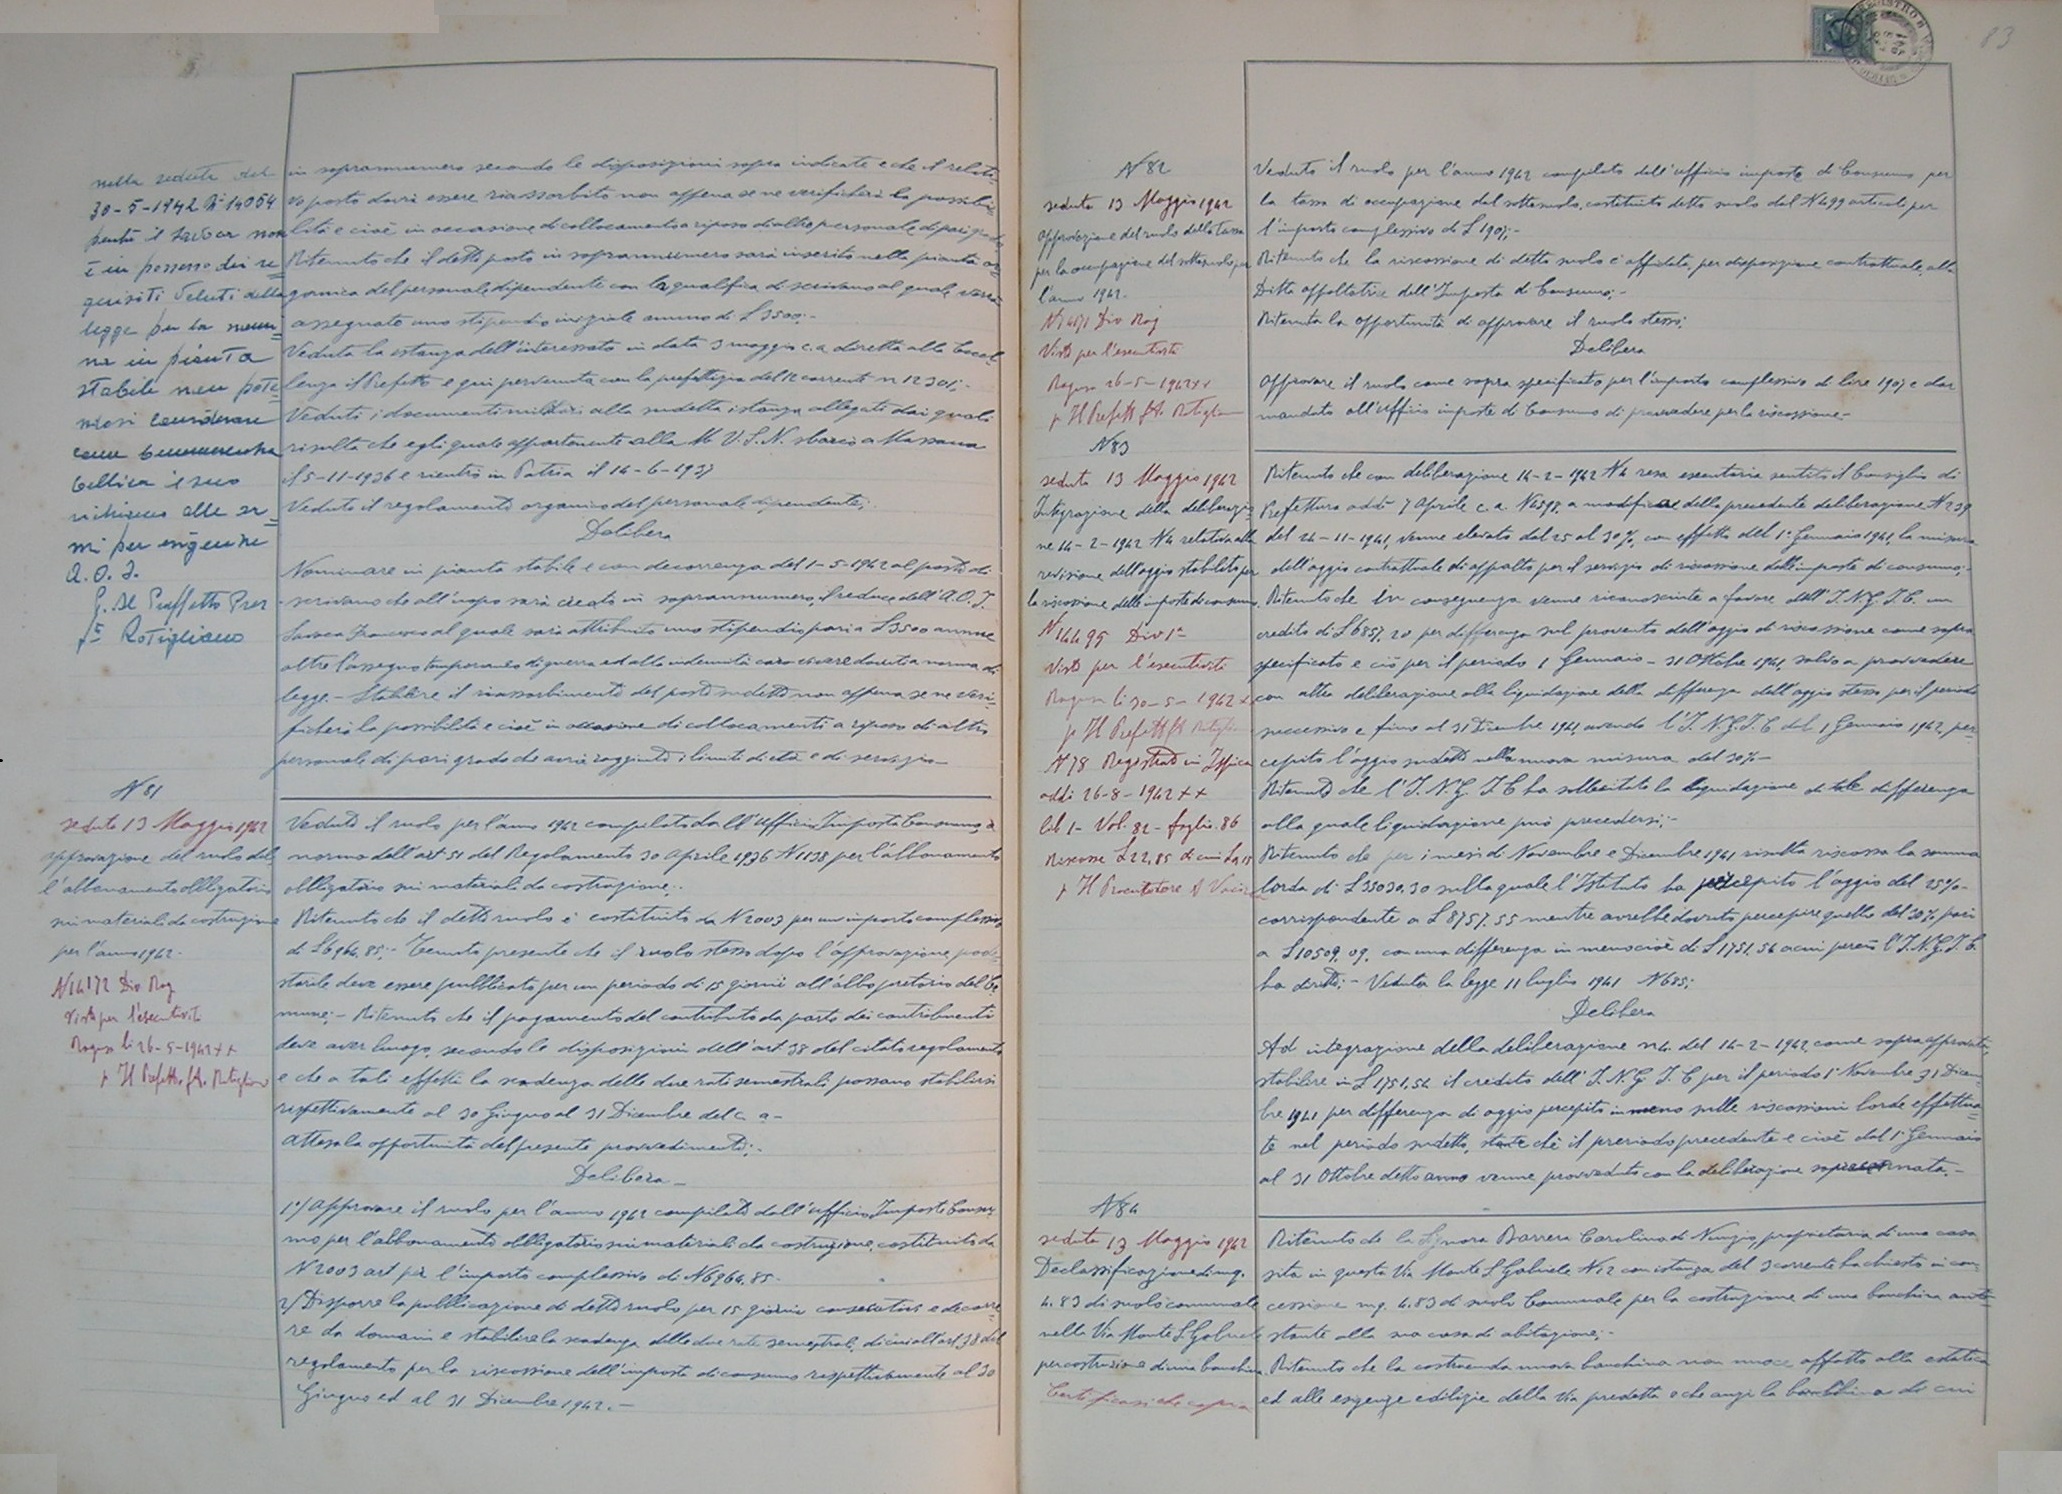 nella seduta del
30-5-1942 N° 14054
perché il Savoca non
è in possesso dei re=
quisiti voluti dalla
legge per la nomi-
na in pianta
stabile non poten-
dosi considerare
come benemerenza
bellica il suo
richiamo alle ar=
mi per esigenze
A.O.I.
Il Prefetto Pres
f° Rotigliano
in soprannumero secondo le disposizioni sopra indicate e che il relati-
vo posto dovrà essere riassorbito non appena se ne verificherà la possibi-
lità e cioè in occasione di collocamento a riposo di altro personale di pari grado
Ritenuto che il detto posto in soprannumero sarà inserito nella pianta or-
ganica del personale dipendente con la qualifica di scrivano al quale verrà
assegnato uno stipendio iniziale annuo di L 3500:-
Veduta la istanza dell'interessato in data 3 maggio c.a. diretta alla Eccel-
lenza il Prefetto e qui pervenuta con la prefettizia del 12 corrente n 12301:-
Veduti i documenti militari alla sudetta istanza allegati dai quali
risulta che egli quale appartenente alla M.V.S.N. sbarcò a Massaua
il 5-11-1936 e rientrò in Patria il 14-6-1937
Veduto il regolamento organico del personale dipendente;.
Delibera
Nominare in pianta stabile e con decorrenza del 1-5-1942 al posto di
scrivano che all'uopo sarà creato in soprannumero, il reduce dell'A.O.I.
Savoca Francesco al quale sarà attribuito uno stipendio pari a L 3500 annue
oltre l'assegno temporaneo di guerra ed alle indennità caro vivere dovuti a norma di
legge.- Stabilire il riassorbimento del posto sudetto non appena se ne veri-
ficherà la possibilità e cioè in occasione di collocamenti a riposo di altro
personale di pari grado che avrà raggiunto i limiti di età e di servizio-
N 81
seduta 13 Maggio 1942
approvazione del ruolo del-
l'abbonamento obbligatorio
sui materiali da costruzione
per l'anno 1942-
N 14172 Div Rag
Visto per l'esecutività
Ragusa lì 26-5-1942 XX
p Il Prefetto fto Rotigliano
Veduto il ruolo per l'anno 1942 compilato dall'Ufficio Imposte Consumo, a
norma dell'art 51 del Regolamento 30 Aprile 1936 N 1138 per l'abbonamento
obbligatorio sui materiali da costruzione;.
Ritenuto che il detto ruolo è costituito da N 2003 per un importo complessivo
di L 6964,85;- Tenuto presente che il ruolo stesso dopo l'approvazione pode-
starile deve essere pubblicato per un periodo di 15 giorni all'albo pretorio del Co-
mune;- Ritenuto che il pagamento del contributo da parte dei contribuenti
deve aver luogo, secondo le disposizioni dell'art. 38 del citato regolamento
e che a tali effetti la scadenza delle due rate semestrali possano stabilirsi
rispettivamente al 30 Giugno al 31 Dicembre del c. a-
Attesa la opportunità del presente provvedimento;-
Delibera-
1°/ Approvare il ruolo per l'anno 1942 compilato dall'Ufficio Imposte Consu-
mo per l'abbonamento obbligatorio sui materiali da costruzione, costituito da
N 2003 art per l'importo complessivo di N 6964,85-
2/ Disporre la pubblicazione di detto ruolo per 15 giorni consecutivi e decorre-
re da domani e stabilire la scadenza delle due rate semestrali, di cui all'art. 38 del
regolamento, per la riscossione dell'imposta di consumo rispettivamente al 30
Giugno ed al 31 Dicembre 1942.-
83
N 82
seduta 13 Maggio 1942
Approvazione del ruolo della tassa
per la occupazione del sottosuolo per
l'anno 1942-
N 14171 Div Rag
Visto per l'esecutività
Ragusa 26-5-1942 XX
p Il Prefetto fto Rotigliano
Veduto il ruolo per l'anno 1942 compilato dall'ufficio imposte di Consumo per
la tassa di occupazione del sottosuolo, costituito detto ruolo dal N 499 articoli per
l'importo complessivo di L 1907;-
Ritenuto che la riscossione di detto ruolo è affidata, per disposizione contrattuale, alla
Ditta appaltatrice dell'Imposta di Consumo;-
Ritenuta la opportunità di approvare il ruolo stesso;
Delibera
Approvare il ruolo come sopra specificato per l'importo complessivo di lire 1907 e dar
mandato all'Ufficio imposte di Consumo di provvedere per la riscossione-
N 83
seduta 13 Maggio 1942
Integrazione della deliberazio-
ne 14-2-1942 N 4 relativa alla
revisione dell'aggio stabilito per
la riscossione delle imposte di consumo.
N 14499 Div 1ª
Visto per l'esecutività
Ragusa lì 30-5-1942 X
p Il Prefetto fto Rotigliano
N 78 Registrato in Ufficio
addì 26-8-1942 XX
lib 1- Vol. 82- foglio. 86
Riscosse L 22,85 di cui
p Il Procuratore
Ritenuto che con deliberazione 14-2-1942 N 4 resa esecutoria sentito il Consiglio di
Prefettura addì 7 Aprile c.a. a modifica della precedente deliberazione N 239
del 24-11-1941, venne elevato dal 25 al 30%, con effetto del 1° Gennaio 1941, la misura
dell'aggio contrattuale di appalto per il servizio di riscossione delle imposte di consumo;-
Ritenuto che in conseguenza venne riconosciuto a favore dell'I.N.G.I.C. un
credito di L 6857,20 per differenza sul provento dell'aggio di riscossione come sopra
specificato e ciò per il periodo 1 Gennaio - 31 Ottobre 1941, salvo a provvedere
con altra deliberazione alla liquidazione della differenza dell'aggio stesso per il periodo
successivo e fino al 31 Dicembre 1941, avendo l'I.N.G.I.C dal 1 Gennaio 1942, per-
cepito l'aggio sudetto nella nuova misura del 30%-
Ritenuto che l'I.N.G.I.C ha sollecitato la liquidazione di tale differenza
alla quale liquidazione può procedersi;-
Ritenuto che per i mesi di Novembre e Dicembre 1941 risulta riscossa la somma
lorda di L 35030,30 sulla quale l'Istituto ha percepito l'aggio del 25%-
corrispondente a L 8757,55 mentre avrebbe dovuto percepire quello del 30% pari
a L 10509,09, con una differenza in meno cioè di L 1751,54 a cui però l'I.N.G.I.C.
ha diritto;- Veduta la legge 11 luglio 1941 N 685;
Delibera
Ad integrazione della deliberazione n 4. del 14-2-1942, come sopra approvata,
stabilire in L 1751,54 il credito dell'I.N.G.I.C per il periodo 1° Novembre 31 Dicem-
bre 1941 per differenza di aggio percepito in meno sulle riscossioni lorde effettua=
te nel periodo sudetto, stante chè il periodo precedente e cioè dal 1° Gennaio
al 31 Ottobre detto anno venne provveduto con la deliberazione sopracennata.-
N 84
seduta 13 Maggio 1942
Declassificazione di mq.
4.83 di suolo comunale
nella Via Monte S Gabriele
per costruzione di una banchina.
Certificasi che copia
Ritenuto che la Signora Barrera Carolina di Nunzio, proprietaria di una casa
sita in questa Via Monte S Gabriele N 12 con istanza del 3 corrente ha chiesto in con-
cessione mq. 4.83 di suolo Comunale per la costruzione di una banchina anti-
stante alla sua casa di abitazione;-
Ritenuto che la costruenda nuova banchina non nuoce affatto alla estetica
ed alle esigenze edilizie della Via predetta e che anzi la banchina di cui